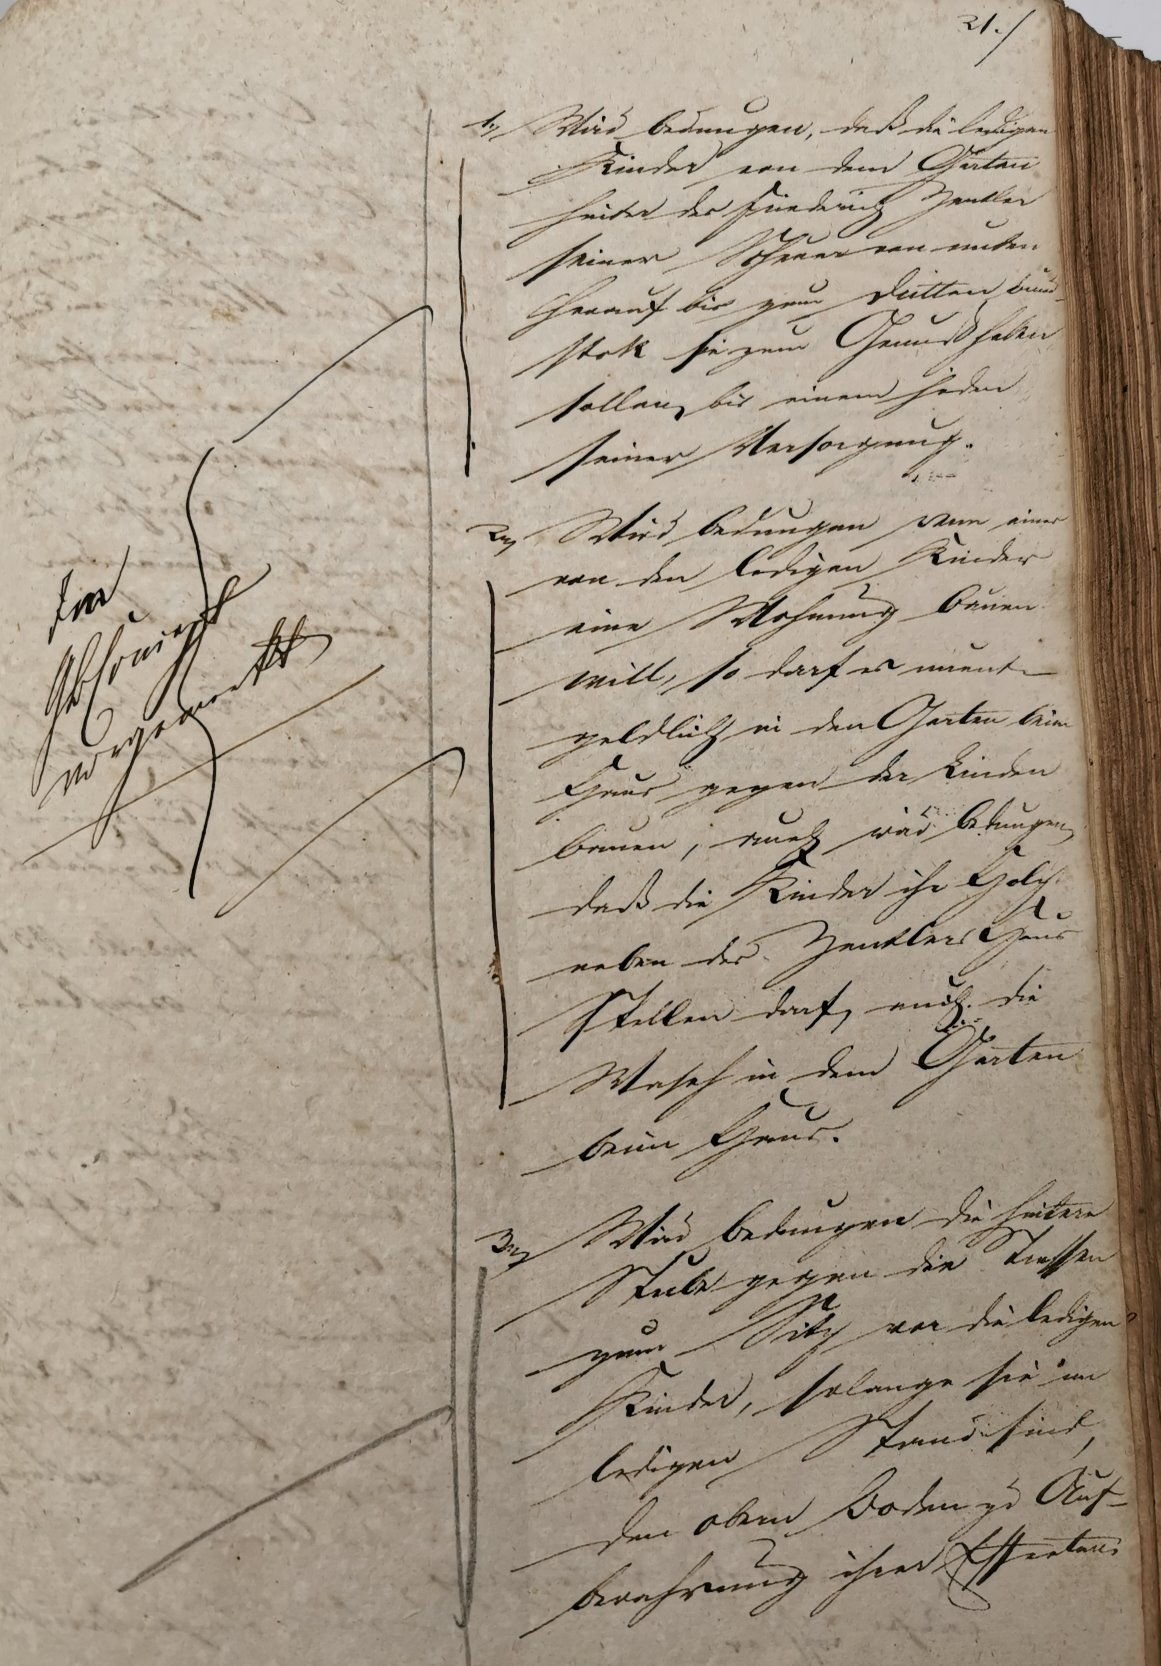 21./
1., Wird bedungen, daß die ledigen
Kinder von dem Garten
hinter des Friederich Zentler
seiner Scheuer von unten
herauf bis zum dritten Baum-
stok sie zum Genuß haben
sollen, bis einem jeden
seiner Versorgung.
2., Wird bedungen wenn eines
von den ledigen Kinder
eine Wohnung bauen
will, so darf es unent-
geldlich in den Garten beim
Haus gegen der Linden
bauen, auch wird bedungen,
daß die Kinder ihr Holz
neben des Zentlers Haus
Stellen darf, auch die
Wasch in dem Garten
beim Haus.
3., Wird bedungen die hintere
Stube gegen die Strassen
zum Sitz vor die ledigen
Kinder, solange sie im
ledigen Stand sind,
den obern Boden zu Auf-
bewahrung ihrer Effecten
Im
vorgemerkt